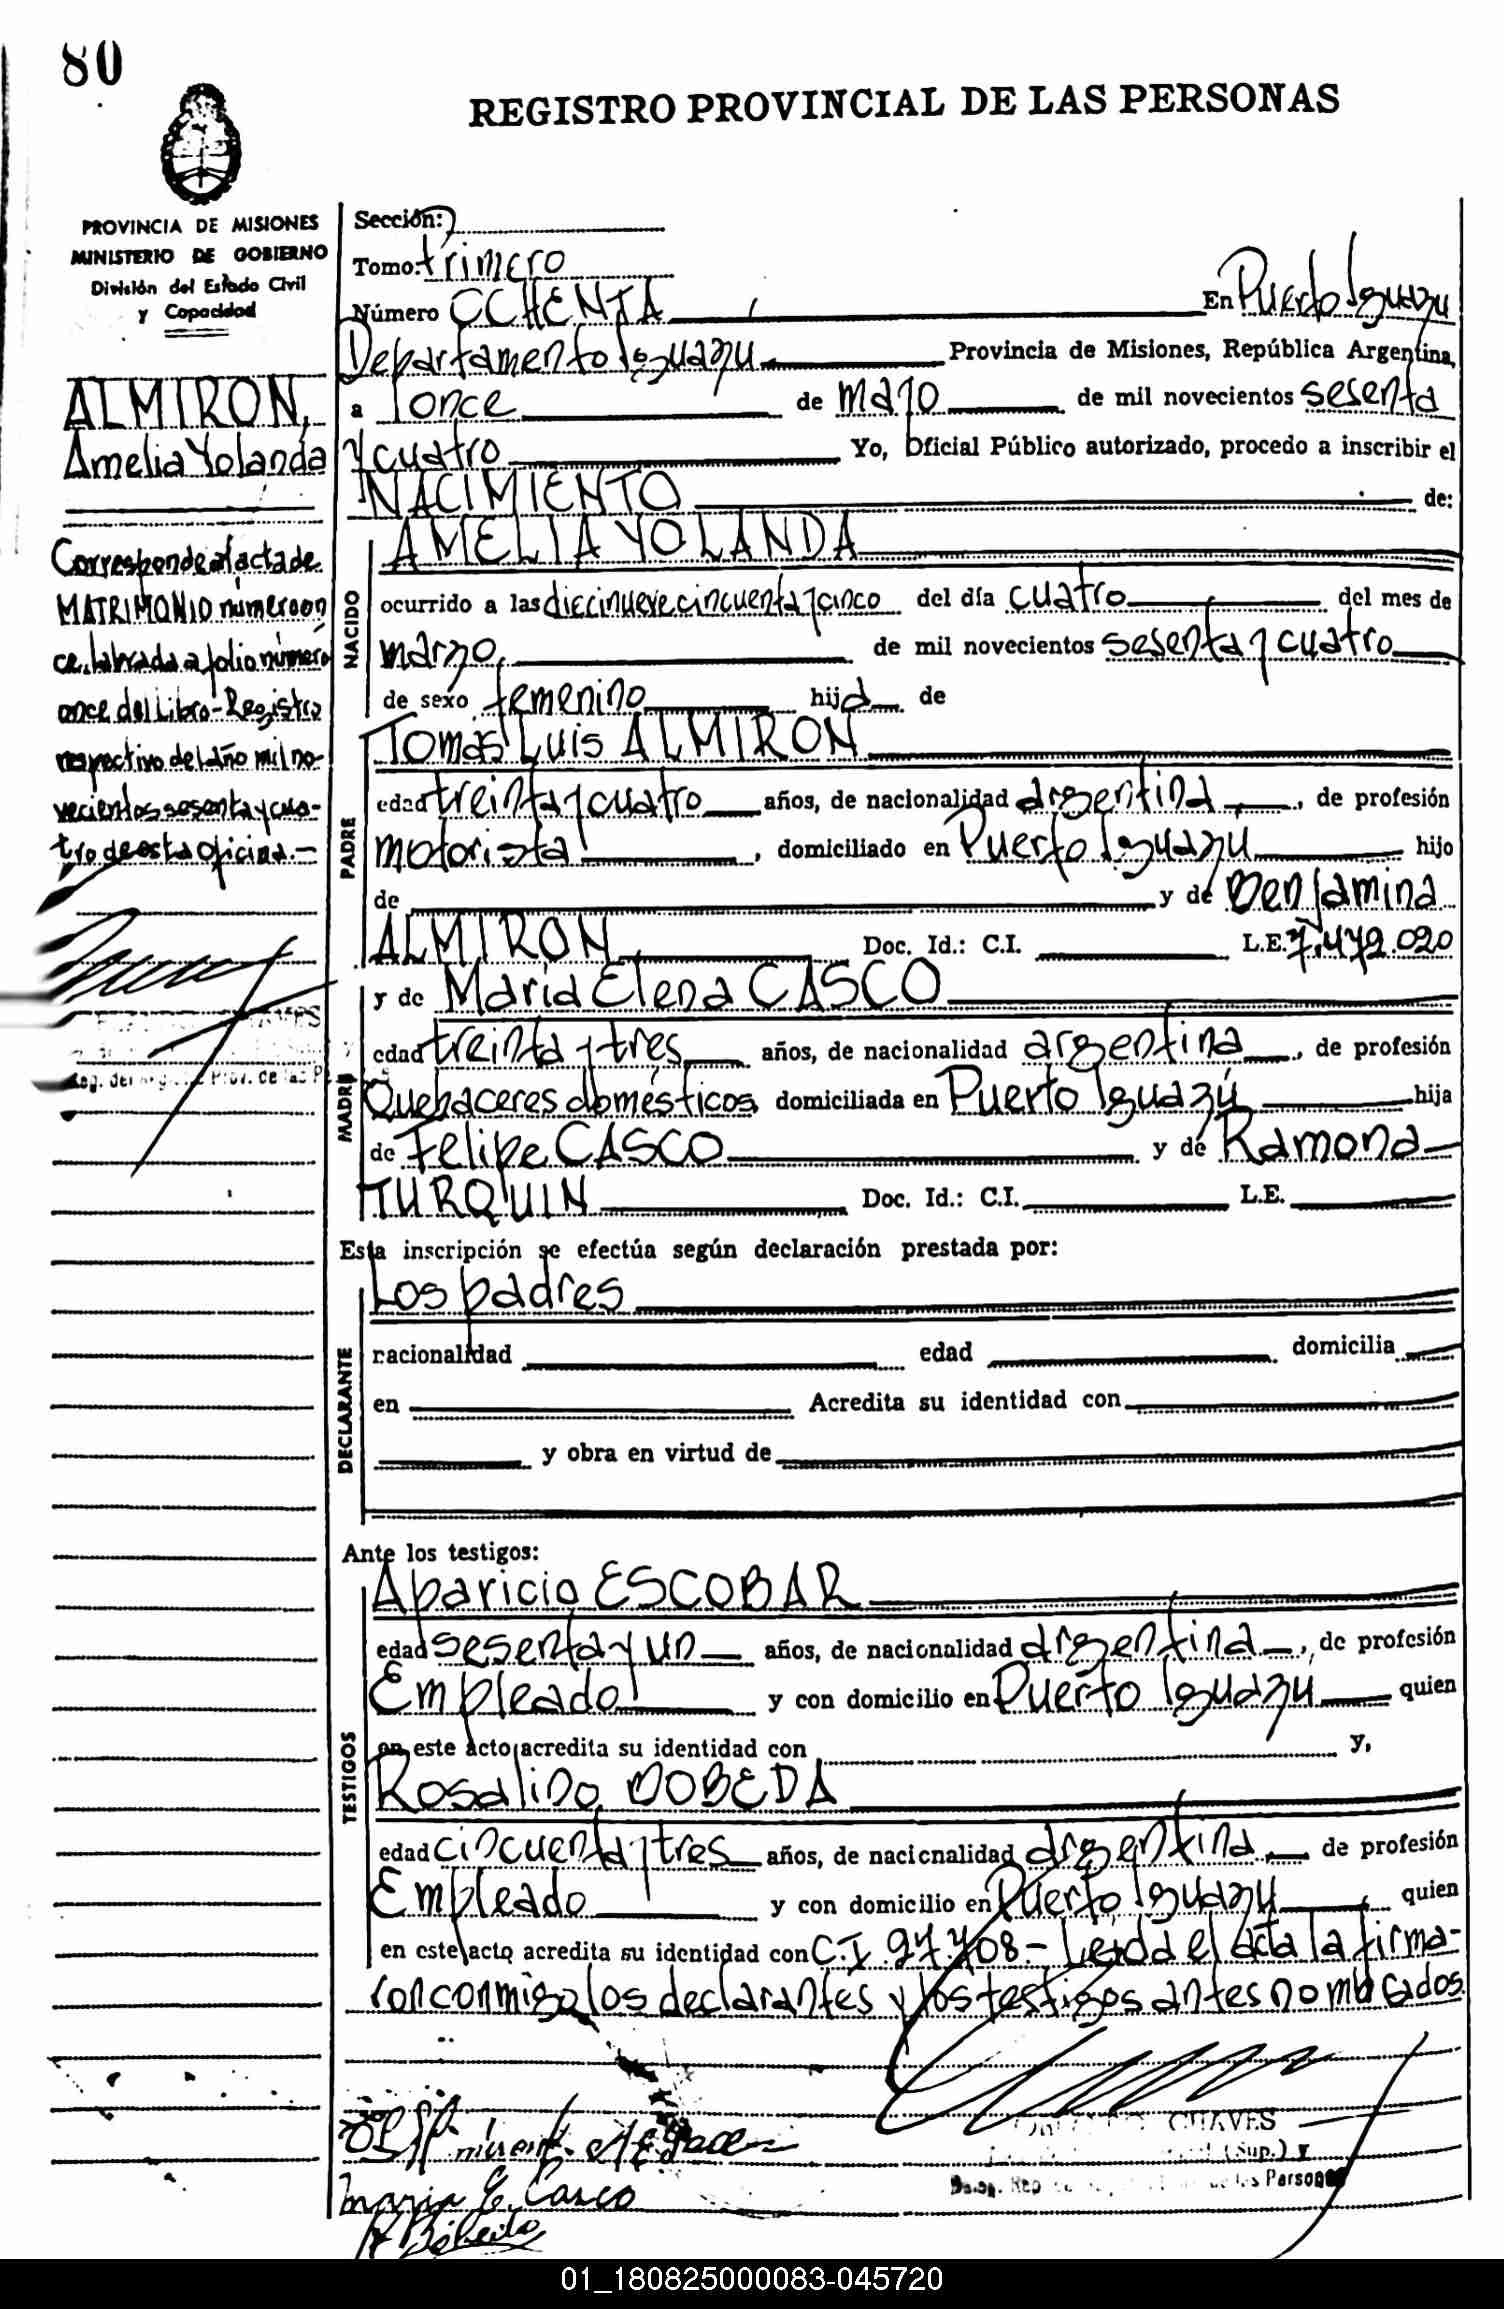 80
REGISTRO PROVINCIAL DE LAS PERSONAS
PROVINCIA DE MISIONES
MINISTERIO DE GOBIERNO
División del Estado Civil
y Capacidad
ALMIRON,
Amelia Yolanda
Corresponde al acta de
MATRIMONIO número on
ce, labrada a folio número
once del Libro-Registro
respectivo del año mil no-
vecientos sesenta y cua-
tro de esta oficina.-
Sección:
Tomo: primero
Número OCHENTA En Puerto Iguazu
Departamento Iguazu Provincia de Misiones, República Argentina,
a once de mayo de mil novecientos sesenta
y cuatro Yo, Oficial Público autorizado, procedo a inscribir el
NACIMIENTO de:
NACIDO
AMELIA YOLANDA
ocurrido a las diecinueve cincuenta y cinco del día cuatro del mes de
marzo de mil novecientos sesenta y cuatro
de sexo femenino hija de
PADRE
Tomás Luis ALMIRON
edad treinta y cuatro años, de nacionalidad argentina, de profesión
motorista, domiciliado en Puerto Iguazú hijo
de y de Benjamina
ALMIRON Doc. Id.: C.I. L.E. 7.472.020
MADRE
y de María Elena CASCO
edad treinta y tres años, de nacionalidad argentina, de profesión
Quehaceres domésticos, domiciliada en Puerto Iguazú hija
de Felipe CASCO y de Ramona
TURQUIN Doc. Id.: C.I. L.E.
Esta inscripción se efectúa según declaración prestada por:
DECLARANTE
Los padres
nacionalidad edad domicilia
en Acredita su identidad con
y obra en virtud de
Ante los testigos:
TESTIGOS
Aparicio ESCOBAR
edad sesenta y un años, de nacionalidad argentina, de profesión
Empleado y con domicilio en Puerto Iguazu quien
en este acto acredita su identidad con y,
Rosalino BOBEDA
edad cincuenta y tres años, de nacionalidad argentina, de profesión
Empleado y con domicilio en Puerto Iguazu, quien
en este acto acredita su identidad con C.I. 97.708.- Leida el acta la firma-
ron conmigo los declarantes y los testigos antes nombrados.
CHAVES
(Sup.) y
Maria E. Casco
01_180825000083-045720